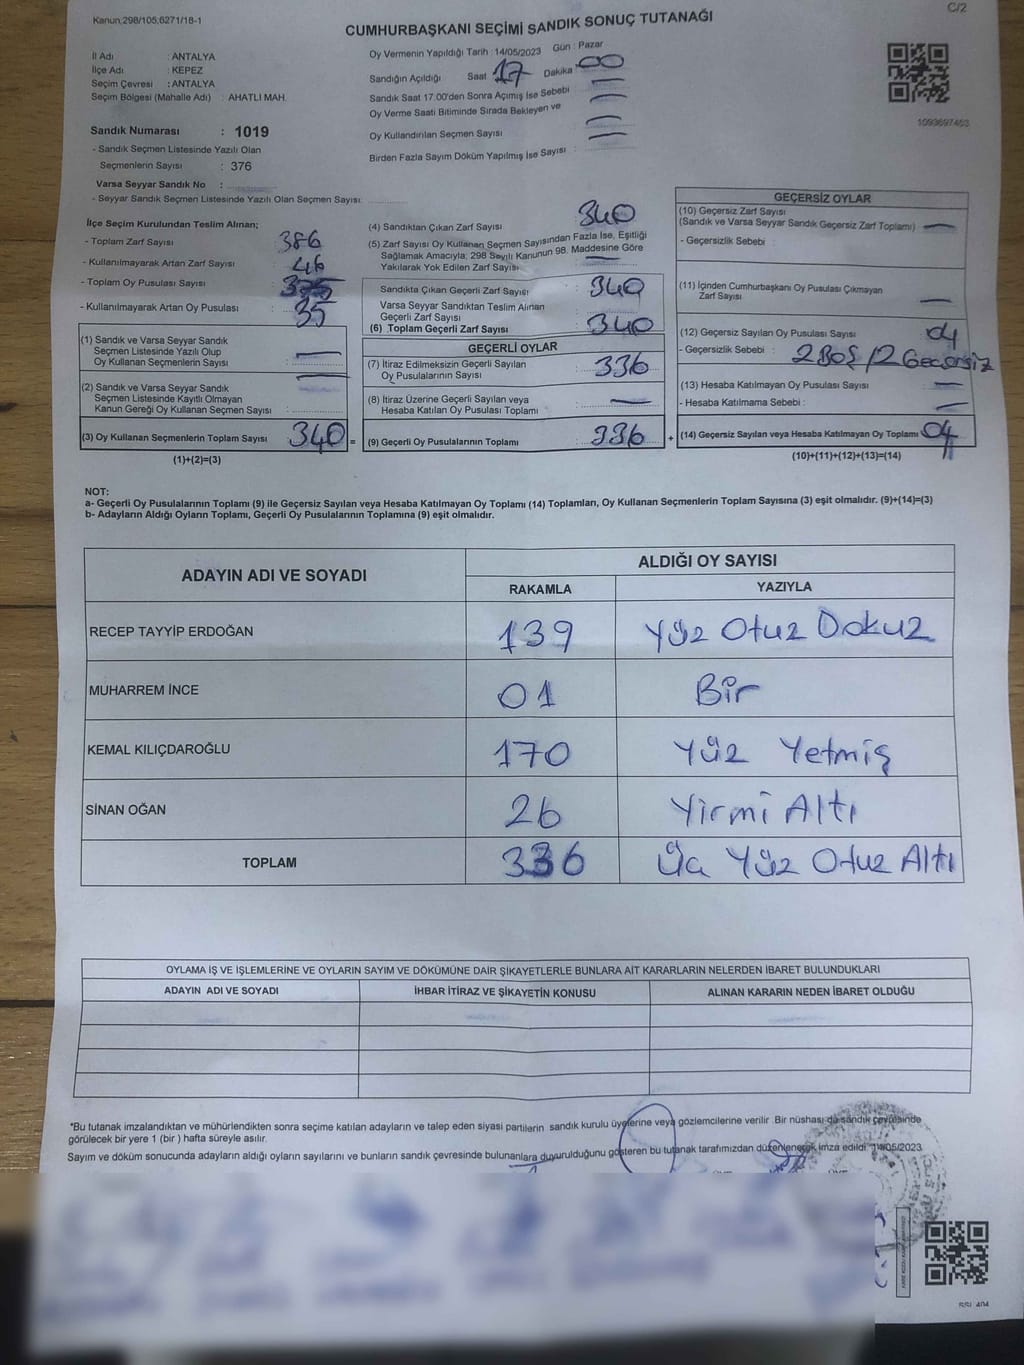 Kanun:298/105,6271/18-1
C/2
CUMHURBAŞKANI SEÇİMİ SANDIK SONUÇ TUTANAĞI
İl Adı : ANTALYA
İlçe Adı : KEPEZ
Seçim Çevresi : ANTALYA
Seçim Bölgesi (Mahalle Adı) : AHATLI MAH.
Sandık Numarası : 1019
- Sandık Seçmen Listesinde Yazılı Olan
Seçmenlerin Sayısı : 376
Varsa Seyyar Sandık No :
- Seyyar Sandık Seçmen Listesinde Yazılı Olan Seçmen Sayısı:
Oy Vermenin Yapıldığı Tarih : 14/05/2023 Gün : Pazar
Sandığın Açıldığı Saat 17 Dakika 00
Sandık Saat 17.00'den Sonra Açımış İse Sebebi :
Oy Verme Saati Bitiminde Sırada Bekleyen ve
Oy Kullandırılan Seçmen Sayısı :
Birden Fazla Sayım Döküm Yapılmış İse Sayısı :
1093697453
İlçe Seçim Kurulundan Teslim Alınan;
- Toplam Zarf Sayısı : 386
- Kullanılmayarak Artan Zarf Sayısı : 46
- Toplam Oy Pusulası Sayısı : 375
- Kullanılmayarak Artan Oy Pusulası : 35
(1) Sandık ve Varsa Seyyar Sandık
Seçmen Listesinde Yazılı Olup
Oy Kullanan Seçmenlerin Sayısı :
(2) Sandık ve Varsa Seyyar Sandık
Seçmen Listesinde Kayıtlı Olmayan
Kanun Gereği Oy Kullanan Seçmen Sayısı :
(3) Oy Kullanan Seçmenlerin Toplam Sayısı : 340 =
(1)+(2)=(3)
(4) Sandıktan Çıkan Zarf Sayısı : 340
(5) Zarf Sayısı Oy Kullanan Seçmen Sayısından Fazla İse, Eşitliği
Sağlamak Amacıyla; 298 Sayılı Kanunun 98. Maddesine Göre
Yakılarak Yok Edilen Zarf Sayısı :
Sandıkta Çıkan Geçerli Zarf Sayısı : 340
Varsa Seyyar Sandıktan Teslim Alınan
Geçerli Zarf Sayısı :
(6) Toplam Geçerli Zarf Sayısı : 340
GEÇERLİ OYLAR
(7) İtiraz Edilmeksizin Geçerli Sayılan
Oy Pusulalarının Sayısı : 336
(8) İtiraz Üzerine Geçerli Sayılan veya
Hesaba Katılan Oy Pusulası Toplamı :
(9) Geçerli Oy Pusulalarının Toplamı : 336 +
GEÇERSİZ OYLAR
(10) Geçersiz Zarf Sayısı
(Sandık ve Varsa Seyyar Sandık Geçersiz Zarf Toplamı) :
- Geçersizlik Sebebi :
(11) İçinden Cumhurbaşkanı Oy Pusulası Çıkmayan
Zarf Sayısı :
(12) Geçersiz Sayılan Oy Pusulası Sayısı : 04
- Geçersizlik Sebebi : 2 BOŞ / 2 Geçersiz
(13) Hesaba Katılmayan Oy Pusulası Sayısı :
- Hesaba Katılmama Sebebi :
(14) Geçersiz Sayılan veya Hesaba Katılmayan Oy Toplamı : 04
(10)+(11)+(12)+(13)=(14)
NOT:
a- Geçerli Oy Pusulalarının Toplamı (9) ile Geçersiz Sayılan veya Hesaba Katılmayan Oy Toplamı (14) Toplamları, Oy Kullanan Seçmenlerin Toplam Sayısına (3) eşit olmalıdır. (9)+(14)=(3)
b- Adayların Aldığı Oyların Toplamı, Geçerli Oy Pusulalarının Toplamına (9) eşit olmalıdır.
ADAYIN ADI VE SOYADI
ALDIĞI OY SAYISI
RAKAMLA YAZIYLA
RECEP TAYYİP ERDOĞAN 139 Yüz Otuz Dokuz
MUHARREM İNCE 01 Bir
KEMAL KILIÇDAROĞLU 170 Yüz Yetmiş
SİNAN OĞAN 26 Yirmi Altı
TOPLAM 336 Üç Yüz Otuz Altı
OYLAMA İŞ VE İŞLEMLERİNE VE OYLARIN SAYIM VE DÖKÜMÜNE DAİR ŞİKAYETLERLE BUNLARA AİT KARARLARIN NELERDEN İBARET BULUNDUKLARI
ADAYIN ADI VE SOYADI
İHBAR İTİRAZ VE ŞİKAYETİN KONUSU
ALINAN KARARIN NEDEN İBARET OLDUĞU
*Bu tutanak imzalandıktan ve mühürlendikten sonra seçime katılan adayların ve talep eden siyasi partilerin sandık kurulu üyelerine veya gözlemcilerine verilir. Bir nüshası da sandık çevresinde
görülecek bir yere 1 (bir ) hafta süreyle asılır.
Sayım ve döküm sonucunda adayların aldığı oyların sayılarını ve bunların sandık çevresinde bulunanlara duyurulduğunu gösteren bu tutanak tarafımızdan düzenlenerek imza edildi. 14/05/2023